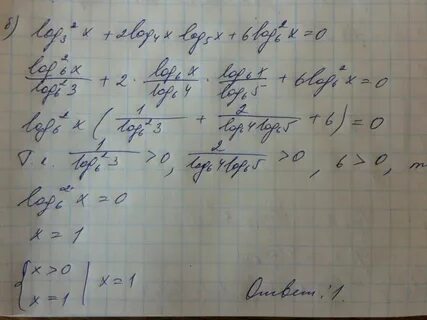 б) log₃²x + 2log₄x log₅x + 6log₆²x = 0
log₆²x / log₆²3 + 2 · log₆x / log₆4 · log₆x / log₆5 + 6log₆²x = 0
log₆²x ( 1 / log₆²3 + 2 / log₆4 log₆5 + 6 ) = 0
Т. к. 1 / log₆²3 > 0, 2 / log₆4 log₆5 > 0, 6 > 0, т
log₆²x = 0
x = 1
{ x > 0
x = 1 | x = 1
Ответ: 1.